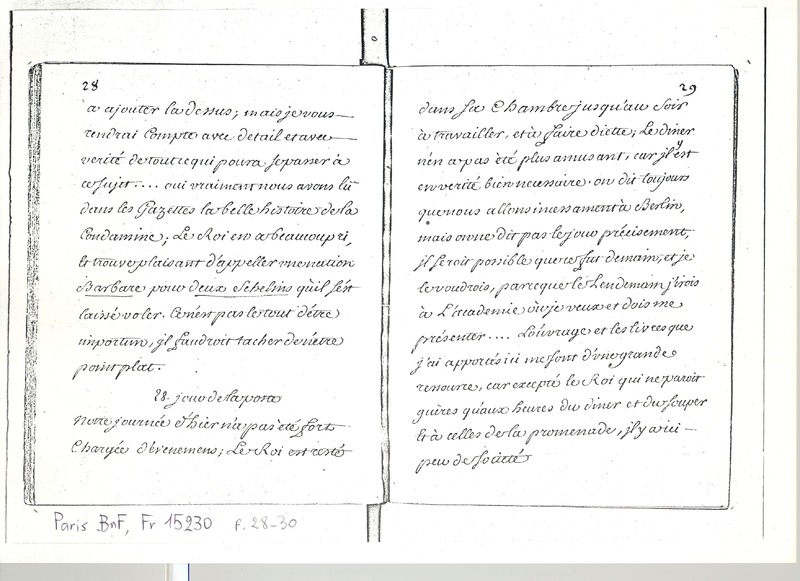 28
a ajouter la dessus; mais je vous
rendrai Compte avec detail et avec
verité de tout ce qui poura se passer à
ce sujet.... oui vraiment nous avons lû
dans les Gazettes la belle histoire de la
Condamine; Le Roi en a beaucoup ri,
et trouve plaisant d'appeller une nation
Barbare pour deux Schelins qu'il s'ést
laissé voler. Ce n'ést pas le tout d'étre
importun, jl faudroit tacher de n'étre
point plat.
28. jour de la poste
Notre journée d'hier n'a pas été fort
Chargée d'évenemens; Le Roi est resté
29
dans sa Chambre jusqu'au Soir
à travailler, et à faire diette; Le diner
n'en a pas été plus amusant, car jl y ést
en verité bien necessaire. on dit toujours
que nous allons incessament à Berlin,
mais on ne dit pas le jour précisement;
jl seroit possible que ce fut demain; et je
le voudrois, parce que le Lendemain j'irois
à L'académie où je veux et dois me
présenter.... L'ouvrage et les livres que
j'ai apportés ici me sont d'une grande
ressource, car excepté le Roi qui ne paroit
guères qu'aux heures du diner et du souper
et à celles de la promenade, jl y a ici
peu de societé
Paris BnF, Fr 15230 f. 28-30